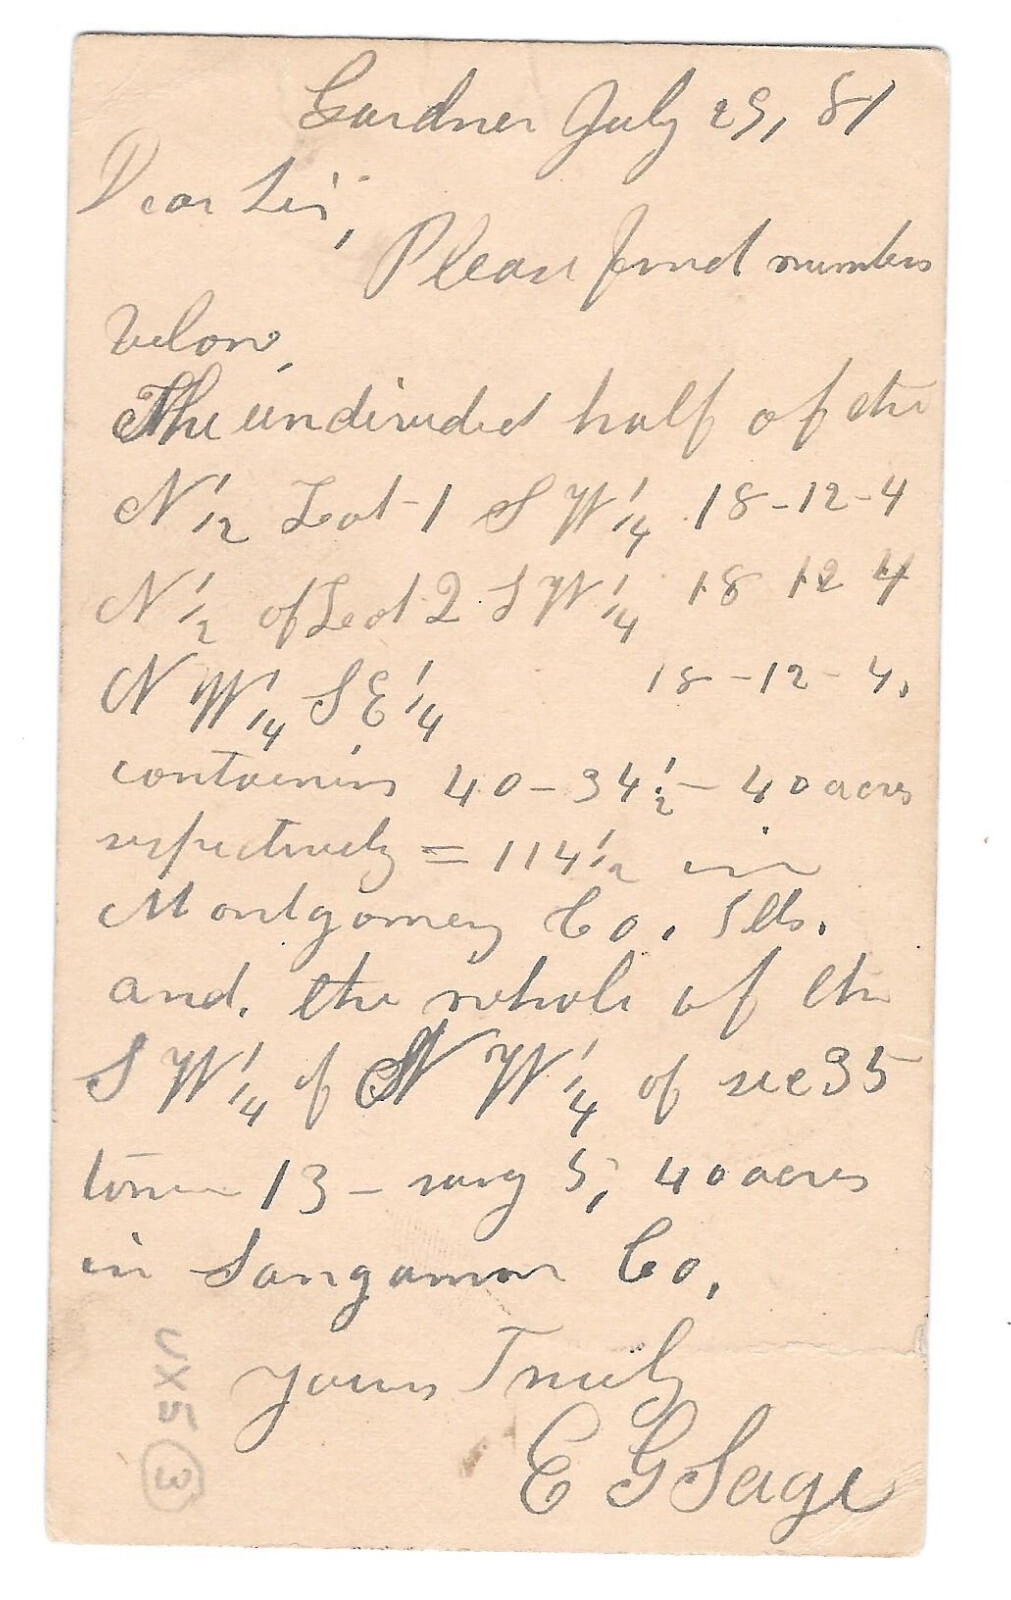 Gardner July 29, 81
Dear Sir,
Please find numbers
below,
The undivided half of the
N 1/2 Lot-1 S W 1/4 18-12-4
N 1/2 of Lot 2 S W 1/4 18 12 4
N W 1/4 S E 1/4 18-12-4.
containing 40-34 1/2-40 acres
respectively = 114 1/2 in
Montgomery Co. Ills.
and. the whole of the
S W 1/4 of N W 1/4 of sec 35
town 13- rang 5, 40 acres
in Sangamon Co,
yours Truly
E G Sage
UX5 3